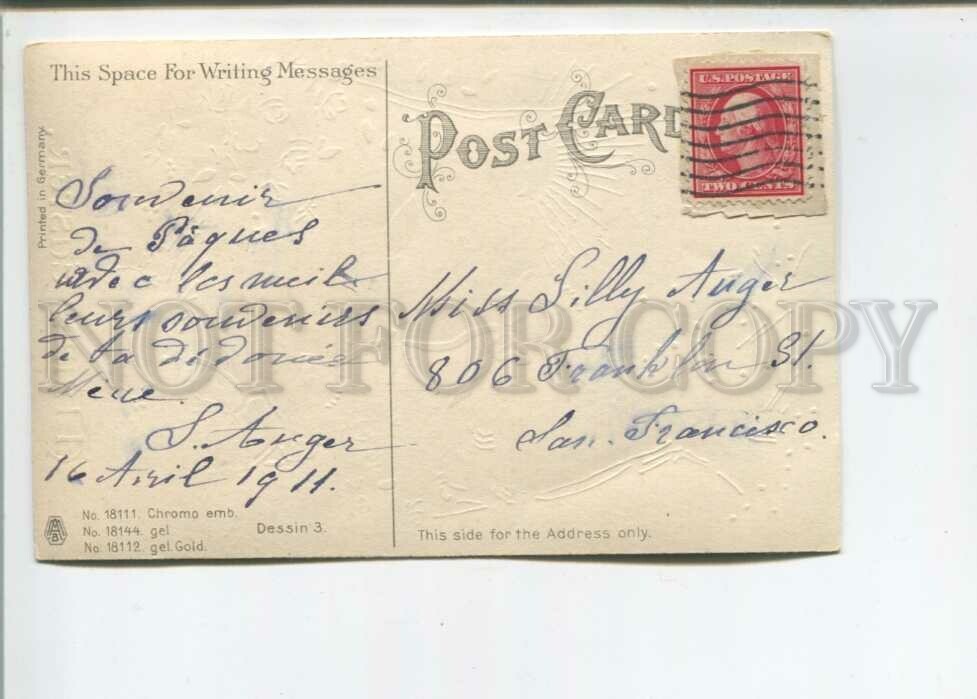 This Space For Writing Messages
POST CARD
U.S. POSTAGE
TWO CENTS
Printed in Germany.
Souvenir
de Pâques
avec les meil
leurs souvenirs
de ta dédouée
Mère.
S. Auger
16 Avril 1911.
Miss Lilly Auger
806 Franklin St.
San. Francisco.
No. 18111. Chromo emb.
No. 18144. gel
No. 18112. gel. Gold.
Dessin 3.
This side for the Address only.
NOT FOR COPY